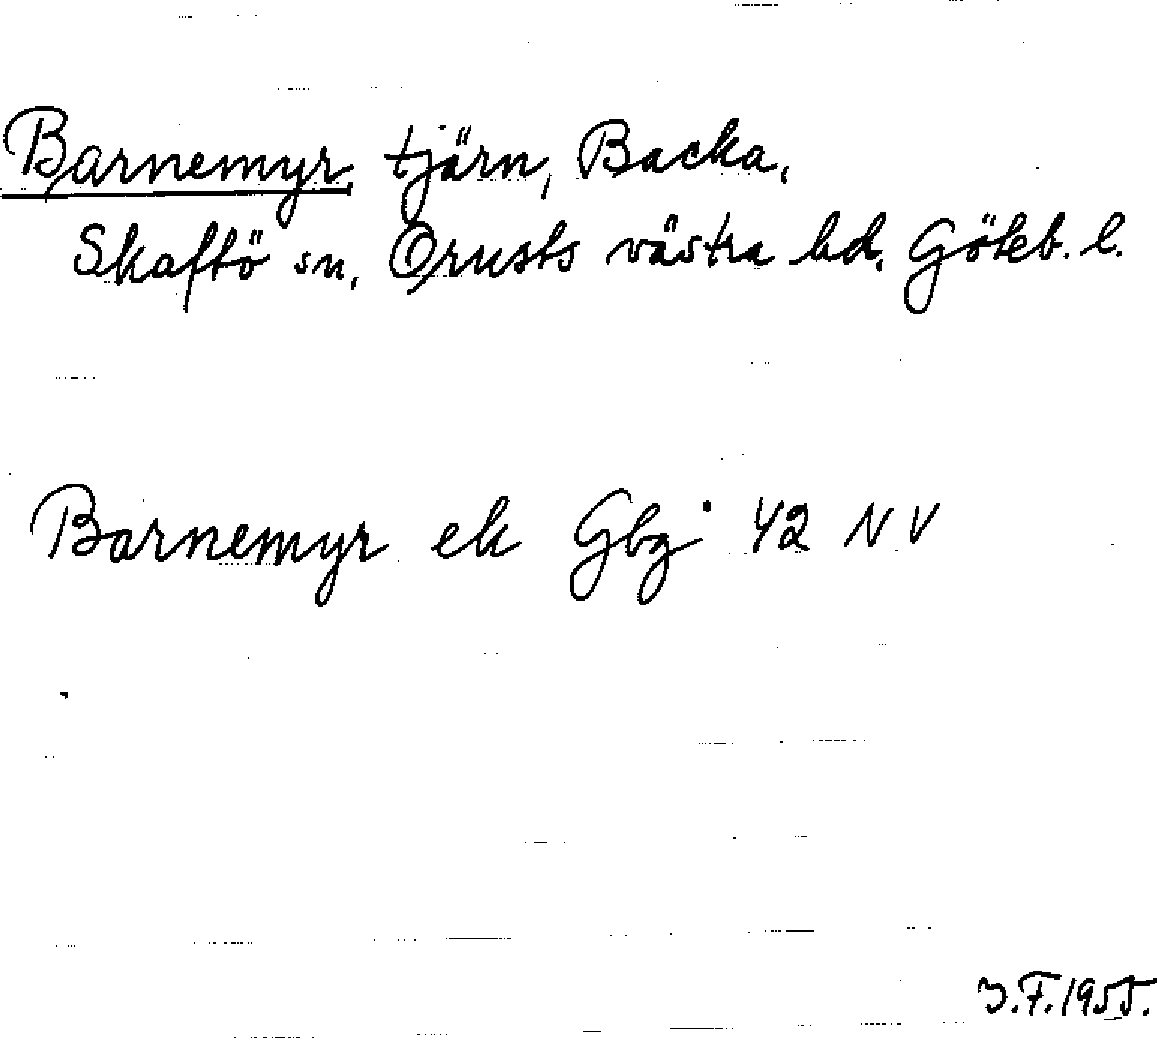 Barnemyr, tjärn, Backa,
Skaftö sn, Orusts västra hd. Göteb. l.
Barnemyr ek Gbg 42 NV
J.F. 1955.